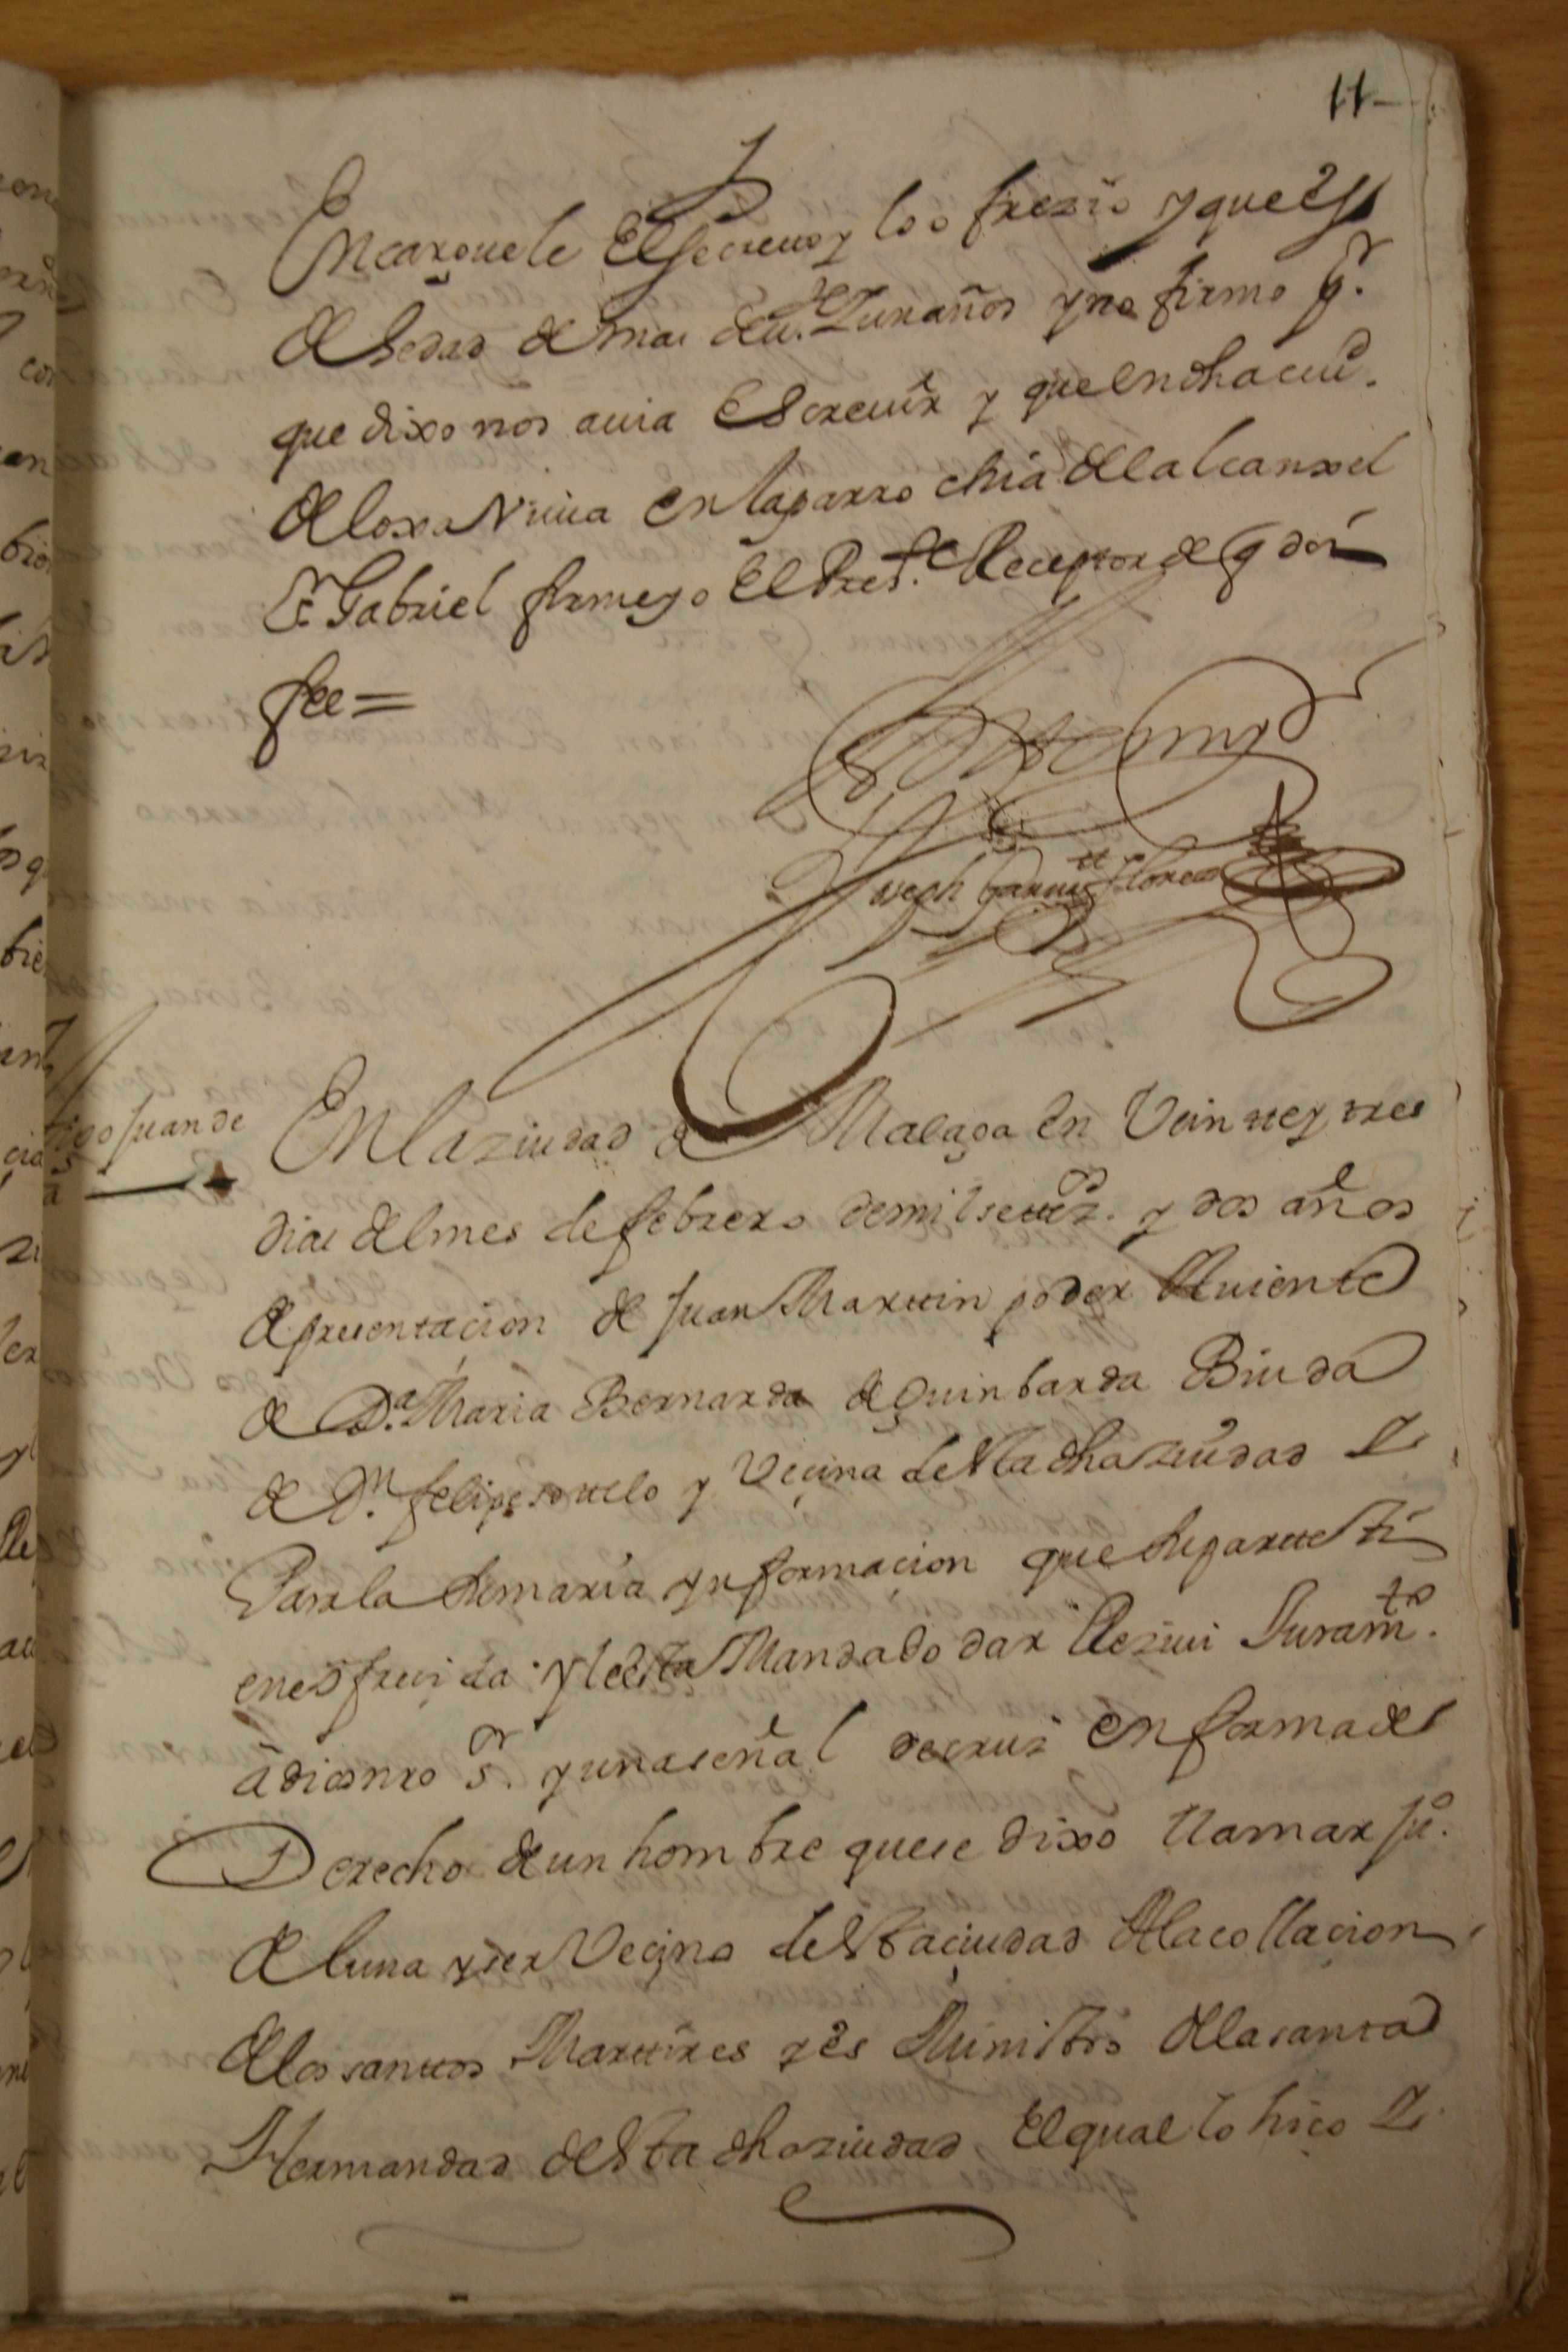 11
Encarguele El secreto y lo o frezio y que es
de hedad de mas de u.te Zinx años y no firmo p.r
que dixo nos auia Escreuir y que en dha ciu.d
de loxa Viuia en la parro chia de la l canxel
S.r Gabriel firme yo El Pres.te Receptor de q doi
fee =
Joseph garcia Florez
tigo Juan de
En la ziudad de Malaga en Vein tte y tres
dias del mes de febrero de mil settez.os y dos años
de pressentacion de Juan Marttin poder Auiente
de D.a Maria Bernarda de Quinbarda Biuda
de D.n felipe sottelo y Vecina de esta dha ziudad
Para la sumaria ynformacion que su partte ti
ene ofrecida y le esta Mandado dar Rezeui Juram.to
a dios nro S.r y una señal de cruz en forma de
Derecho de un hombre que se dixo llamar Ju.o
de luna y ser Vecino de esta ciudad de la collacion
de los santtos Marttires y es Ministro de la santa
Hermandad de esta dha ziudad El qual lo hiço